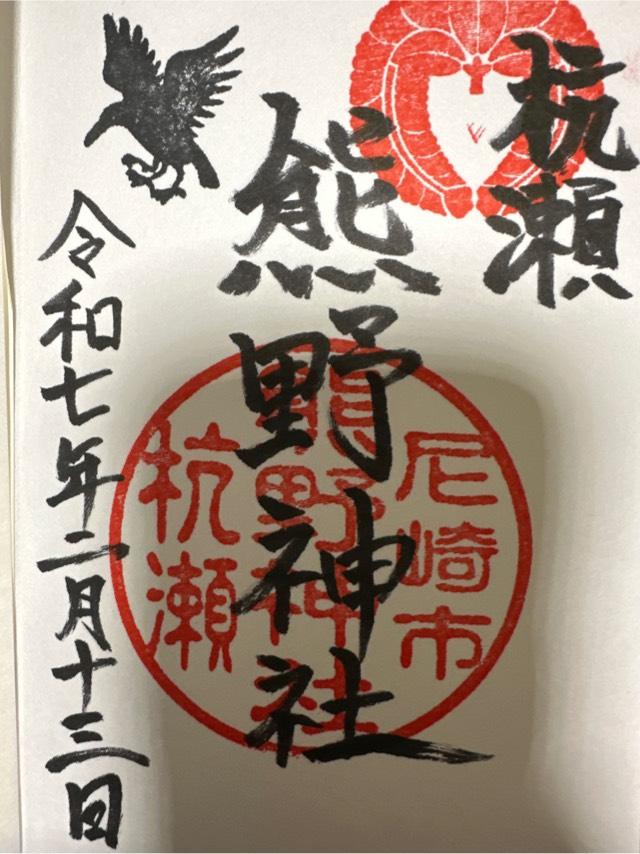 杭瀬
熊野神社
尼崎市
熊野神社
杭瀬
令和七年二月十三日